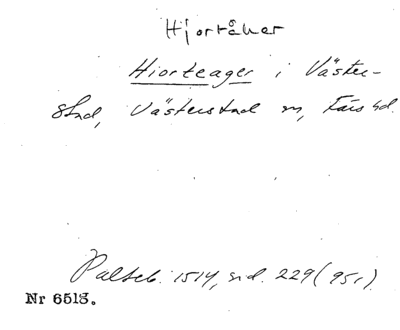 Hjortåker
Hiorteager i Väster-
stad, Västerstad sn, Färs hd.
Palteb. 1514, sid. 229 (95r).
Nr 6513.